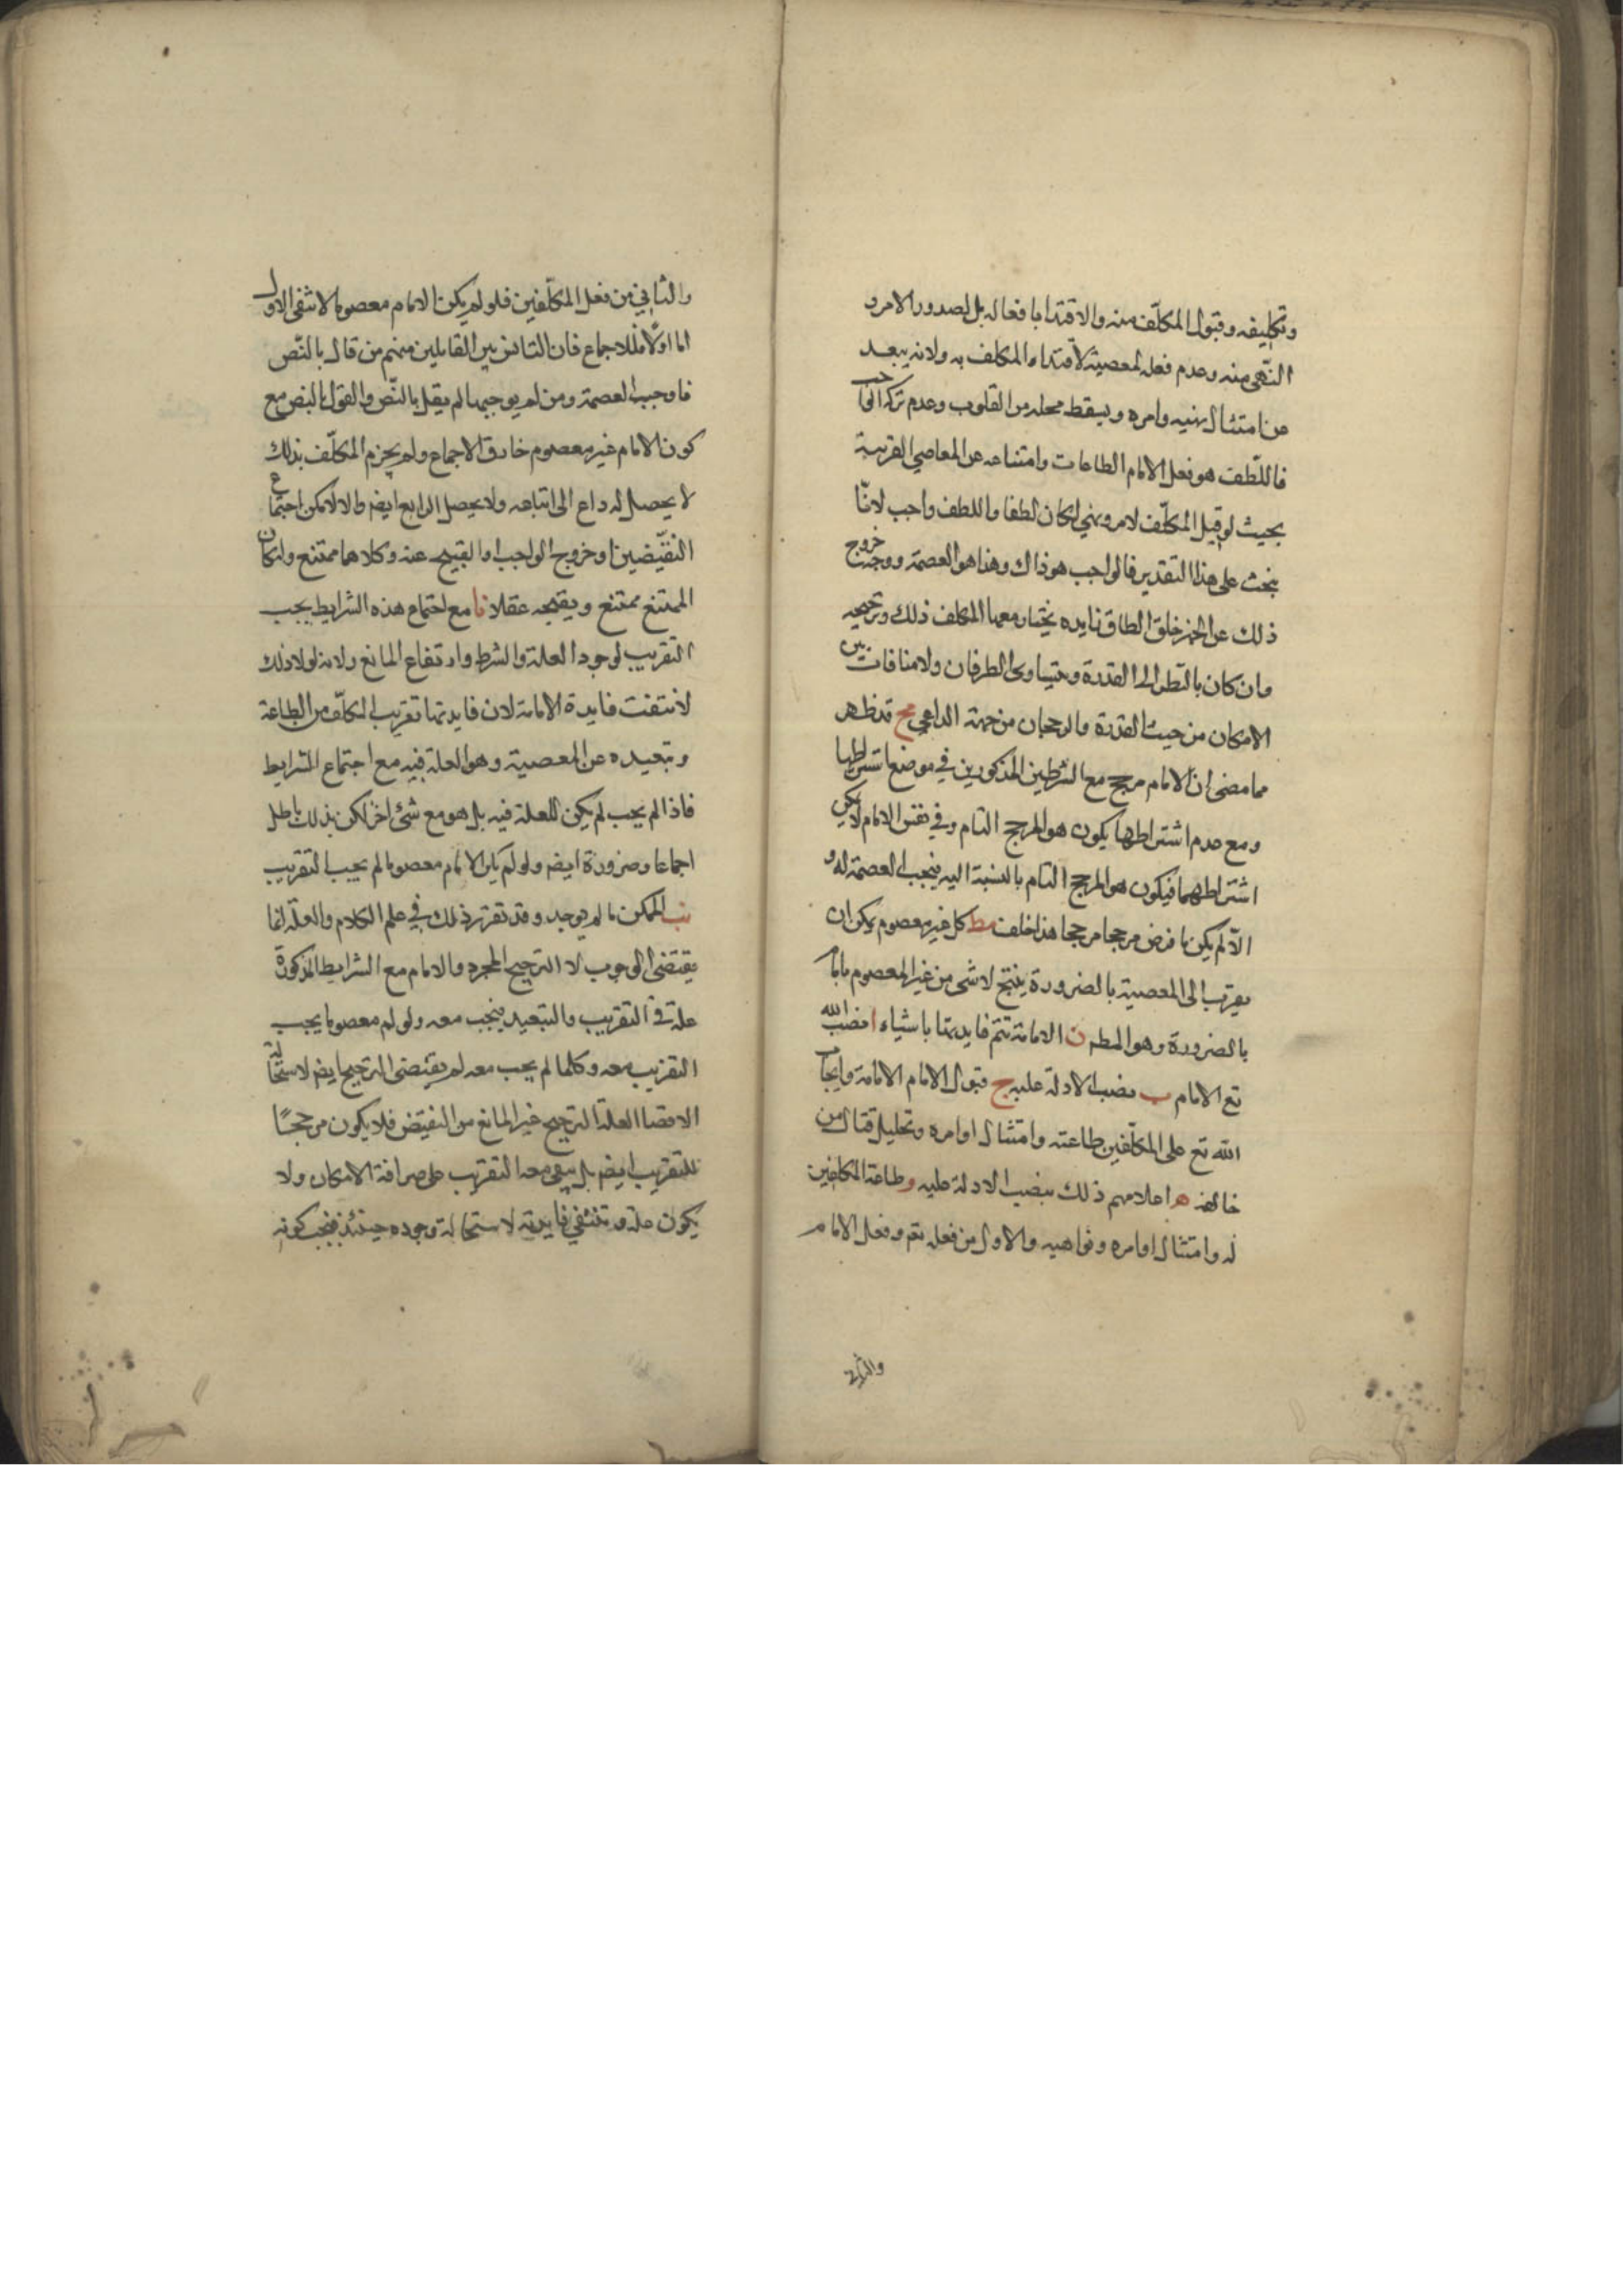 وتكليفه وقبول المكلّف منه والاقتدا بافعاله بل لصدور الامر و
النّهى منه وعدم فعله لمعصية لاقتداء المكلف به ولانه يبعد
عن امتثال نهيه وامره ويسقط محله من القلوب وعدم تركه الواجب
فاللّطف هو فعل الامام الطاعات وامتناعه عن المعاصي القريبة
بحيث لو قبل المكلّف لامر ونهي لكان لطفا واللطف واجب لانّا
نبحث على هذا التقدير فالواجب هو ذاك وهذا هو العصمة ووجب خروج
ذلك عن خلق الطاق يختار معها المكلف ذلك وترجيحه
وان كان بالنّظر الى القدرة يتساوى الطرفان ولا منافات بين
الامكان من حيث القدرة والرجحان من جهة الداعي مح قد ظهر
مما مضى ان الامام مرجح مع الشرطين المذكورين في موضع اشتراطها
ومع عدم اشتراطها يكون هو المرجح التام وفي نفس الامام لا يمكن
اشتراطهما فيكون هو المرجح التام بالنسبة اليه فيجب العصمة له و
الاّ لم يكن ما فرض مرجحا مرجحا هذا خلف مط كل غير معصوم يمكن ان
يقرب الى المعصية بالضرورة ينتج لا شى من غير المعصوم بامام
بالضرورة وهو المط ن الامامة تتم فايدتها باشياء ا نصب الله
تع الامام ب نصب الادلة عليه ج قبول الامام الامامة د ايجاب
الله تع على المكلّفين طاعته وامتثال اوامره وتحليل قتال من
خالفه ه اعلامهم ذلك بنصب الادلة عليه و طاعة المكلفين
له وامتثال اوامره ونواهيه والاول من فعله تع وفعل الامام
والثاني
والثاني من فعل المكلّفين فلو لم يكن الامام معصوما لانتفى الاول
اما اولًا فللاجماع فان الناس بين القايلين منهم من قال بالنّص
فاوجب العصمة ومن لم يوجبها لم يقل بالنّص والقول بالنص مع
كون الامام غير معصوم خارق الاجماع ولم يجزم المكلّف بذلك
لا يحصل له داع الى اتباعه ولا يحصل الرابع ايض والا لامكن اجتماع
النقيّضين او خروج الواجب او القبيح عنه وكلاهما ممتنع وامكان
الممتنع ممتنع ويقبحه عقلا نا مع اجتماع هذه الشرايط يجب
التقريب لوجود العلة والشرط وارتفاع المانع ولانه لولا ذلك
لانتفت فايدة الامامة لان فايدتها تقريب المكلّف من الطاعة
وتبعيده عن المعصية وهو العلة فيه مع اجتماع الشرايط
فاذا لم يجب لم يكن العلة فيه بل هو مع شئ اخر لكن بذلك باطل
اجماعا وضرورة ايض ولو لم يكن الامام معصوما لم يجب التقريب
نب الممكن ما لم يوجد وقد تقرر ذلك في علم الكلام والعلة انما
يقتضى الوجوب لا الترجيح المجرد والامام مع الشرايط المذكورة
علة في التقريب والتبعيد فيجب معه ولو لم معصوما يجب
التقريب معه وكلما لم يجب معه لم يقتضى الترجيح ايض لاستحالة
الاقتضا العلة الترجيح غير المانع من النقيّض فلا يكون مرجحًا
للتقريب ايض بل يبقى معه التقريب على صرافة الامكان ولا
يكون علة وتنتفي فايدته لاستحالة وجوده حينئذ فيجب كونه